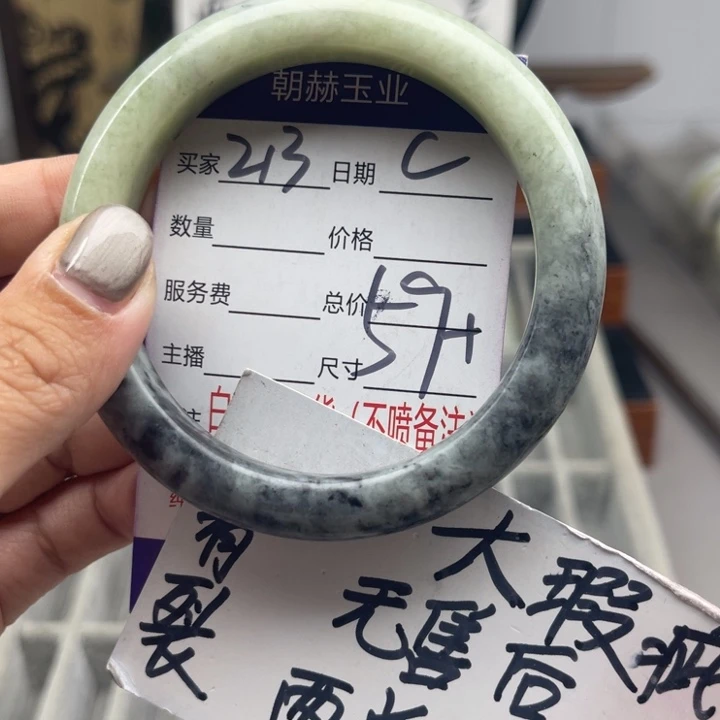 朝赫玉业
买家 213 日期 C
数量 价格
服务费 总价
主播 尺寸 59+
(不喷备注
有裂
大瑕疵
无售后